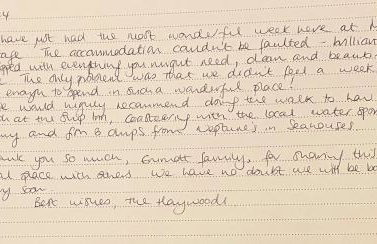 4
have just had the most wonderful week here at
The accommodation couldn't be faulted - brilliant
with everything you might need, clean and beauti
The only problem was that we didn't feel a week
enough to spend in such a wonderful place!
e would highly recommend doing the walk to hav
at the Ship Inn, coasteering with the local water spor
ny and fish & chips from Neptune's in Seahouses.
nk you so much, family, for sharing this
al place with others. We have no doubt we will be ba
ry soon.
Best wishes, The Haywoods